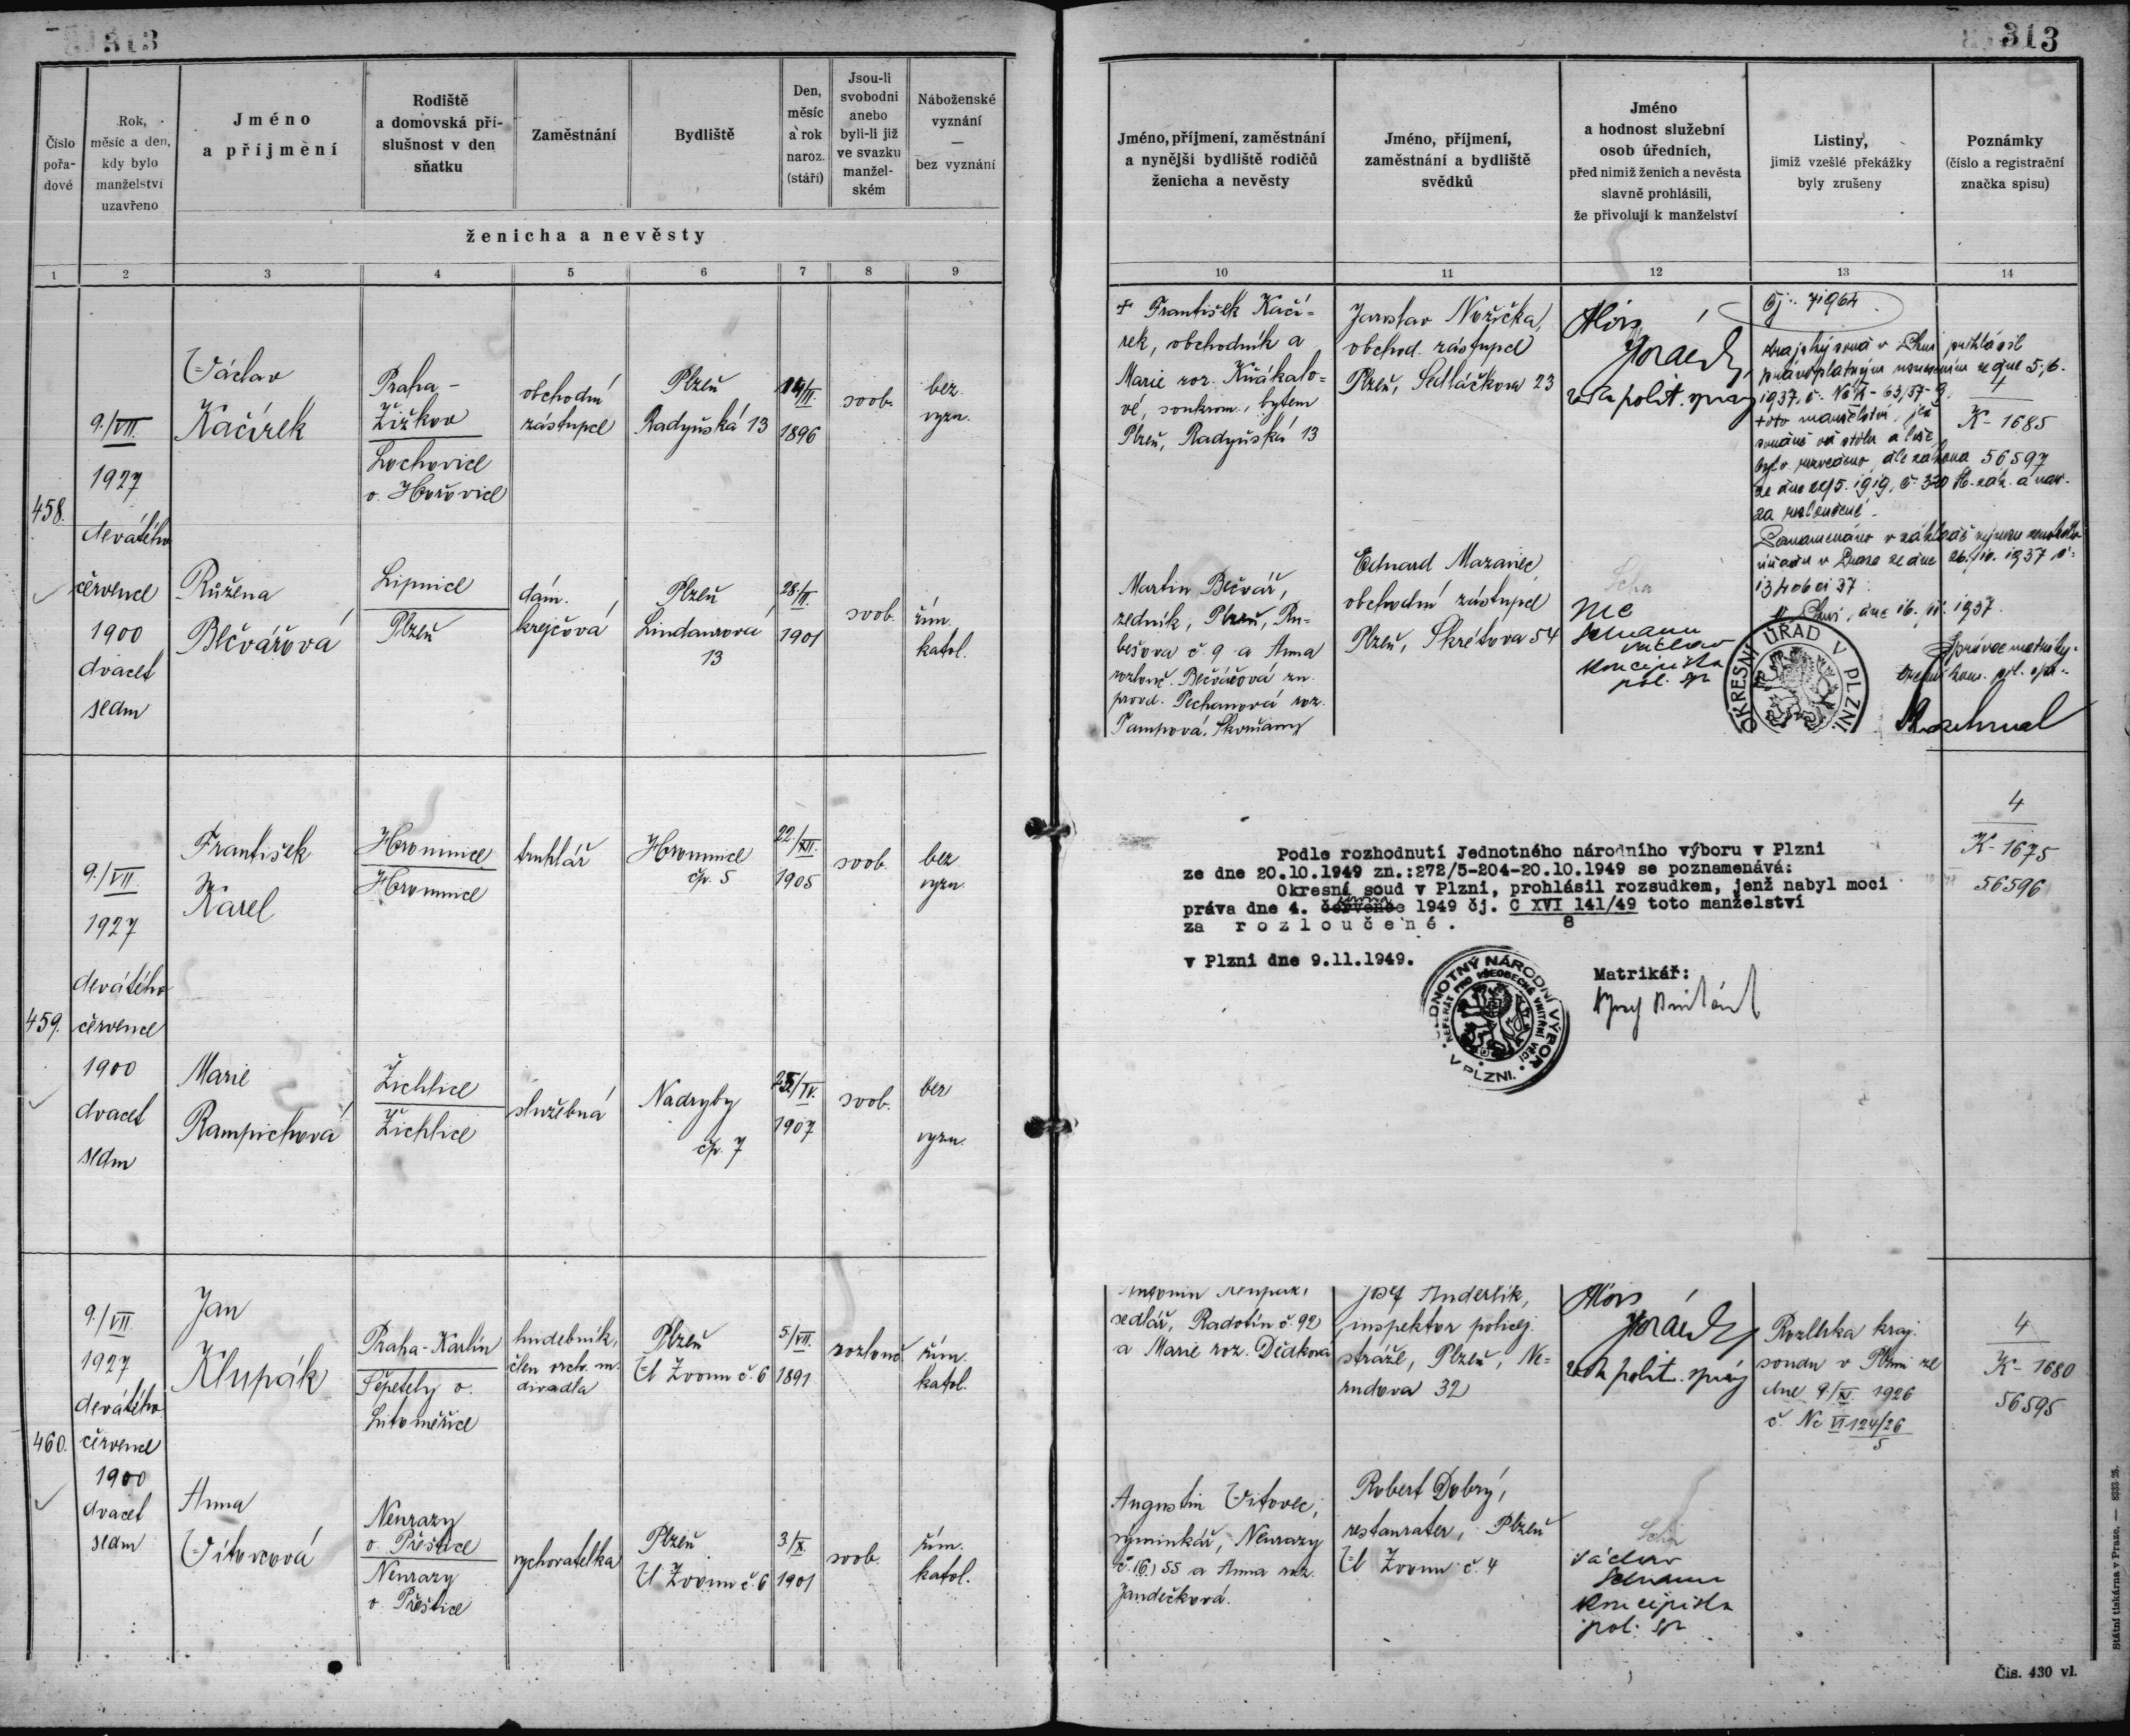 313
313
Číslo pořadové
Rok, měsíc a den, kdy bylo manželství uzavřeno
Jméno a příjmení
Rodiště a domovská příslušnost v den sňatku
Zaměstnání
Bydliště
Den, měsíc a rok naroz. (stáří)
Jsou-li svobodni anebo byli-li již ve svazku manželském
Náboženské vyznání — bez vyznání
ženicha a nevěsty
Jméno, příjmení, zaměstnání a nynější bydliště rodičů ženicha a nevěsty
Jméno, příjmení, zaměstnání a bydliště svědků
Jméno a hodnost služební osob úředních, před nimiž ženich a nevěsta slavně prohlásili, že přivolují k manželství
Listiny, jimiž vzešlé překážky byly zrušeny
Poznámky (číslo a registrační značka spisu)
1 2 3 4 5 6 7 8 9
10 11 12 13 14
458.
9./VII.
1927
devátého
července
1900
dvacet
sedm
Václav
Kačírek
Praha -
Žižkov
Lochovice
o. Hořovice
obchodní
zástupce
Plzeň
Radyňská 13
14/II.
1896
svob.
bez
vyzn.
Růžena
Bečvářová
Lipnice
Plzeň
dám.
krejčová
Plzeň
Lindaurova
13
28/II.
1901
svob.
řím.
katol.
† František Kačí-
rek, obchodník a
Marie roz.
vé, soukrom., bytem
Plzeň, Radyňská 13
Jaroslav Nožička,
obchod. zástupce
Plzeň, Sedláčkova 23
Alois
rada polit. správy
Krajský soud v Plzni prohlásil
pravoplatným usnesením ze dne
1937 č.
toto manželství, jež
od stolu a lože
bylo rozvedeno, dle zákona
ze dne 22/5. 1919, č. 320 Sb. zák. a nař.
za rozloučené.
4
K-1685
56597
Martin Bečvář,
zedník, Plzeň, Ru-
bešova č. 9 a Anna
rozlouč. Bečvářová zn.
provd. Pechanová roz.
Tampová, Skvrňany
Eduard Mazanec
obchodní zástupce
Plzeň, Škrétova 54
koncipista
pol. spr
1937
Správce matriky:
OKRESNÍ ÚŘAD V PLZNI
459.
9./VII
1927
devátého
července
1900
dvacet
sedm
František
Karel
Hromnice
Hromnice
truhlář
Hromnice
čp. 5
22./XII.
1905
svob.
bez
vyzn.
Marie
Rampichová
Žichlice
Žichlice
služebná
Nadryby
čp. 7
25/IV.
1907
svob.
bez
vyzn.
Podle rozhodnutí Jednotného národního výboru v Plzni
ze dne 20.10.1949 zn.:272/5-204-20.10.1949 se poznamenává:
Okresní soud v Plzni, prohlásil rozsudkem, jenž nabyl moci
práva dne 4. července 1949 čj. C XVI 141/49 toto manželství
za rozloučené. 8
v Plzni dne 9.11.1949.
Matrikář:
JEDNOTNÝ NÁRODNÍ VÝBOR V PLZNI.
REFERÁT PRO VŠEOBECNÉ VNITŘNÍ VĚCI
4
K-1675
56596
460.
9./VII.
1927
devátého
července
1900
dvacet
sedm
Jan
Klupák
Praha-Karlín
Sepetely o.
Litoměřice
hudebník,
člen orch. m.
divadla
Plzeň
U Zvonu č. 6
5/VII.
1891
rozlouč.
řím.
katol.
Anna
Vítovcová
Neurazy
o. Přeštice
Neurazy
o. Přeštice
vychovatelka
Plzeň
U Zvonu č. 6
3/X.
1901
svob.
řím.
katol.
Antonín Klupák,
sedlář, Radotín č. 92
a Marie roz. Dědkova
Josef Anderlík,
inspektor policej.
stráže, Plzeň, Ne-
rudova 32
Alois
rada polit. správy
Rozluka kraj.
soudu v Plzni ze
dne 9./XI. 1926
č. Nc VI 124/26
5
4
K-1680
56595
Augustin Vítovec,
výminkář, Neurazy
č. (6) 55 a Anna roz.
Jandečková.
Robert Dobrý,
restauratér, Plzeň
U Zvonu č. 4
Václav
koncipista
pol. spr
Čís. 430 vl.
Státní tiskárna v Praze. — 8333 26.